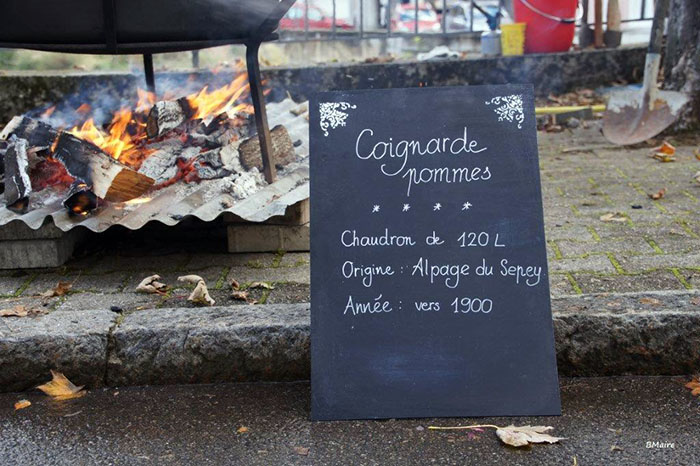 Coignarde
pommes
* * * *
Chaudron de 120 L
Origine : Alpage du Sepey
Année : vers 1900
BMaire